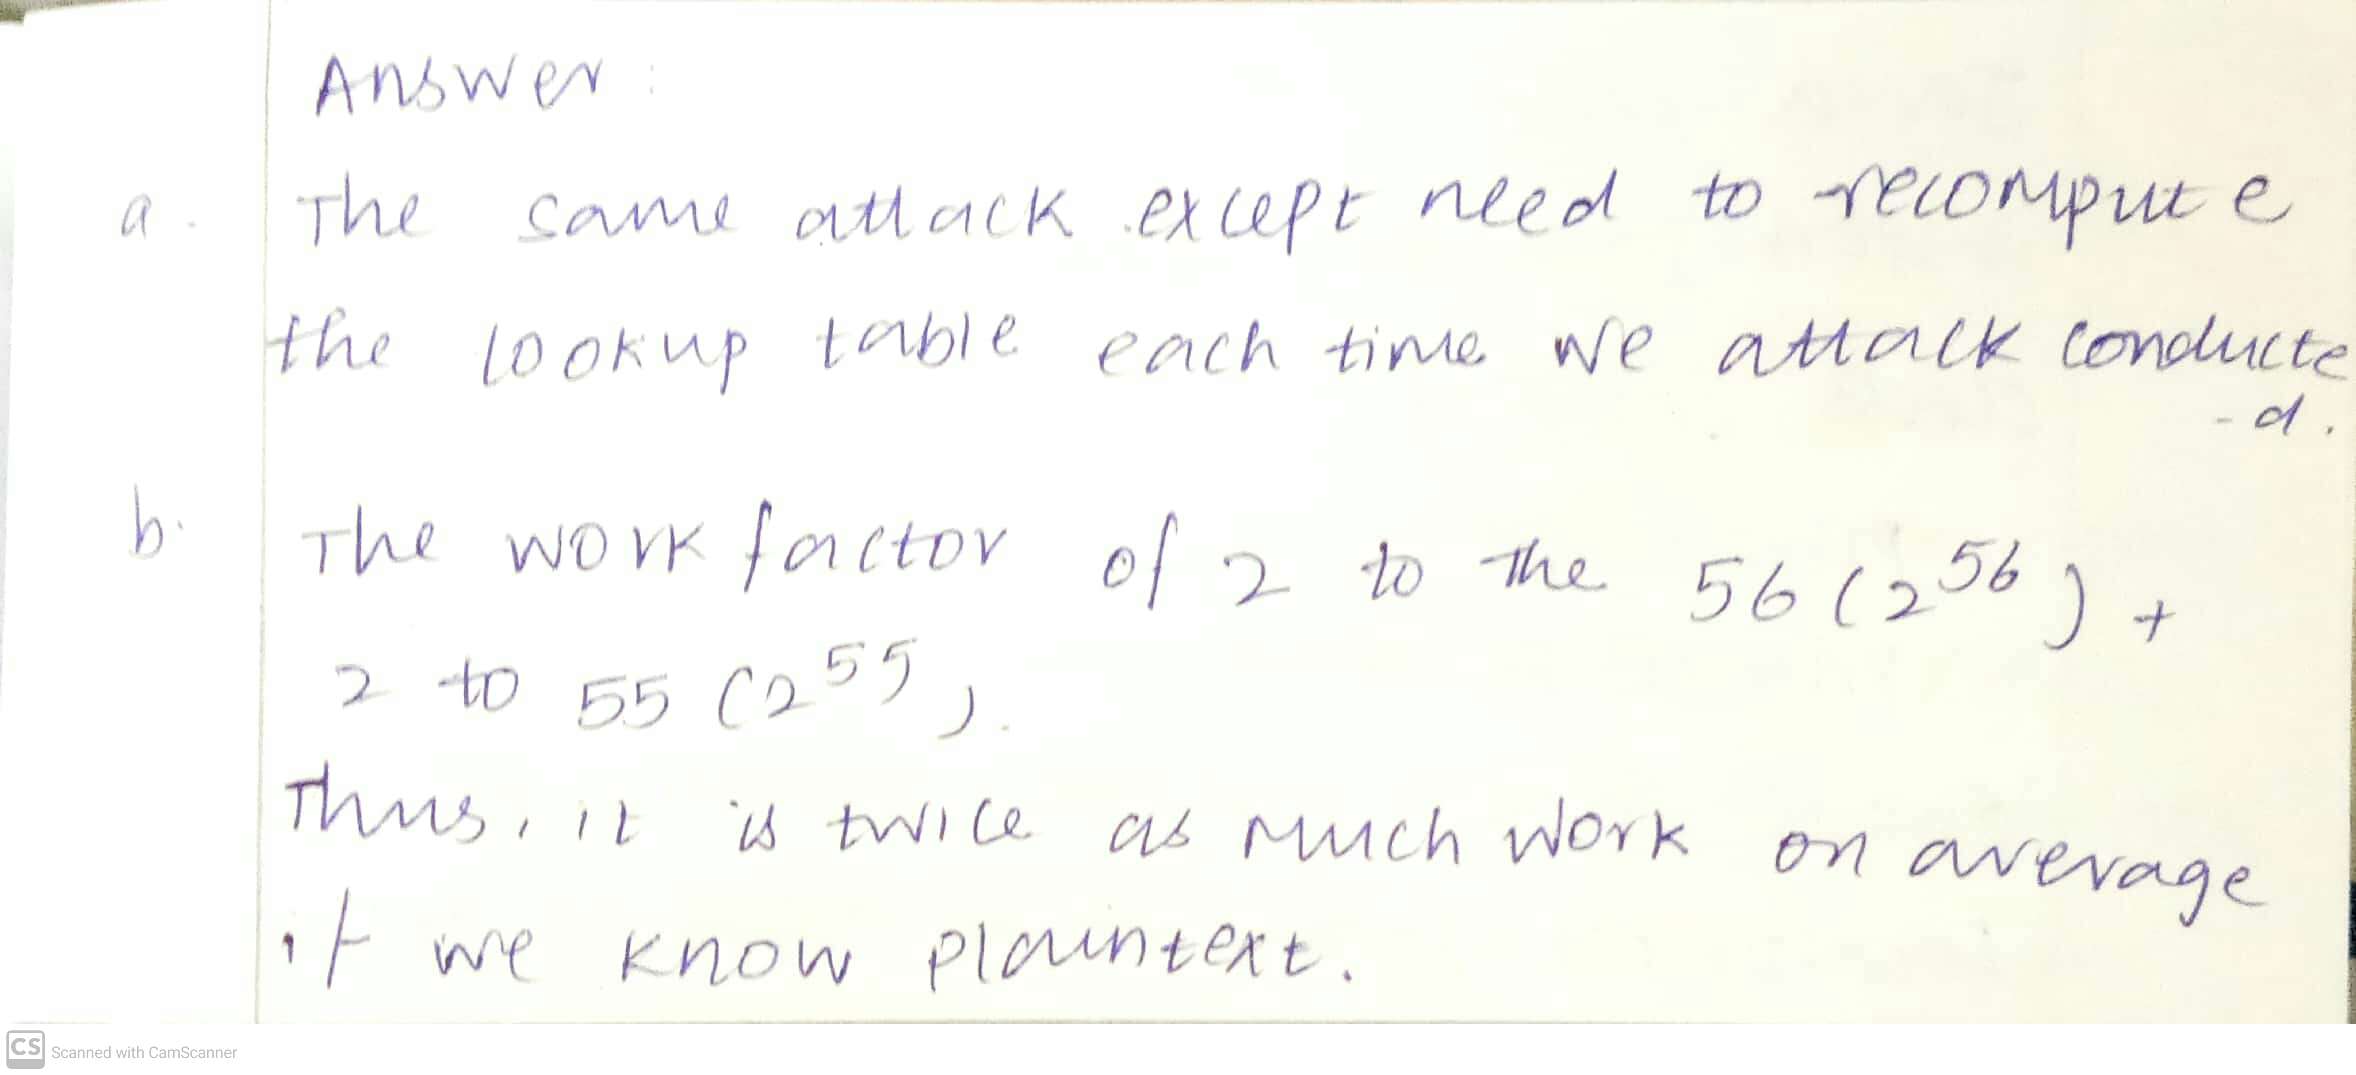 Answer:
a. The same attack except need to recompute
the lookup table each time we attack conducte
-d.
b. The work factor of 2 to the 56 (2^56) +
2 to 55 (2^55).
Thus, it is twice as much work on average
if we know plaintext.
CS Scanned with CamScanner